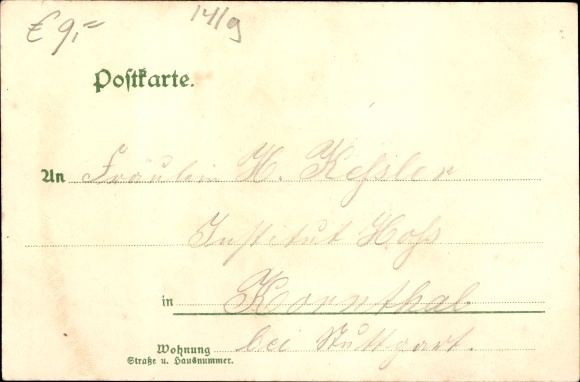 € 9,-
14/9
Postkarte.
An Fräulein H. Kessler
Institut Hoss
in Kornthal
Wohnung bei Stuttgart.
Straße u. Hausnummer.